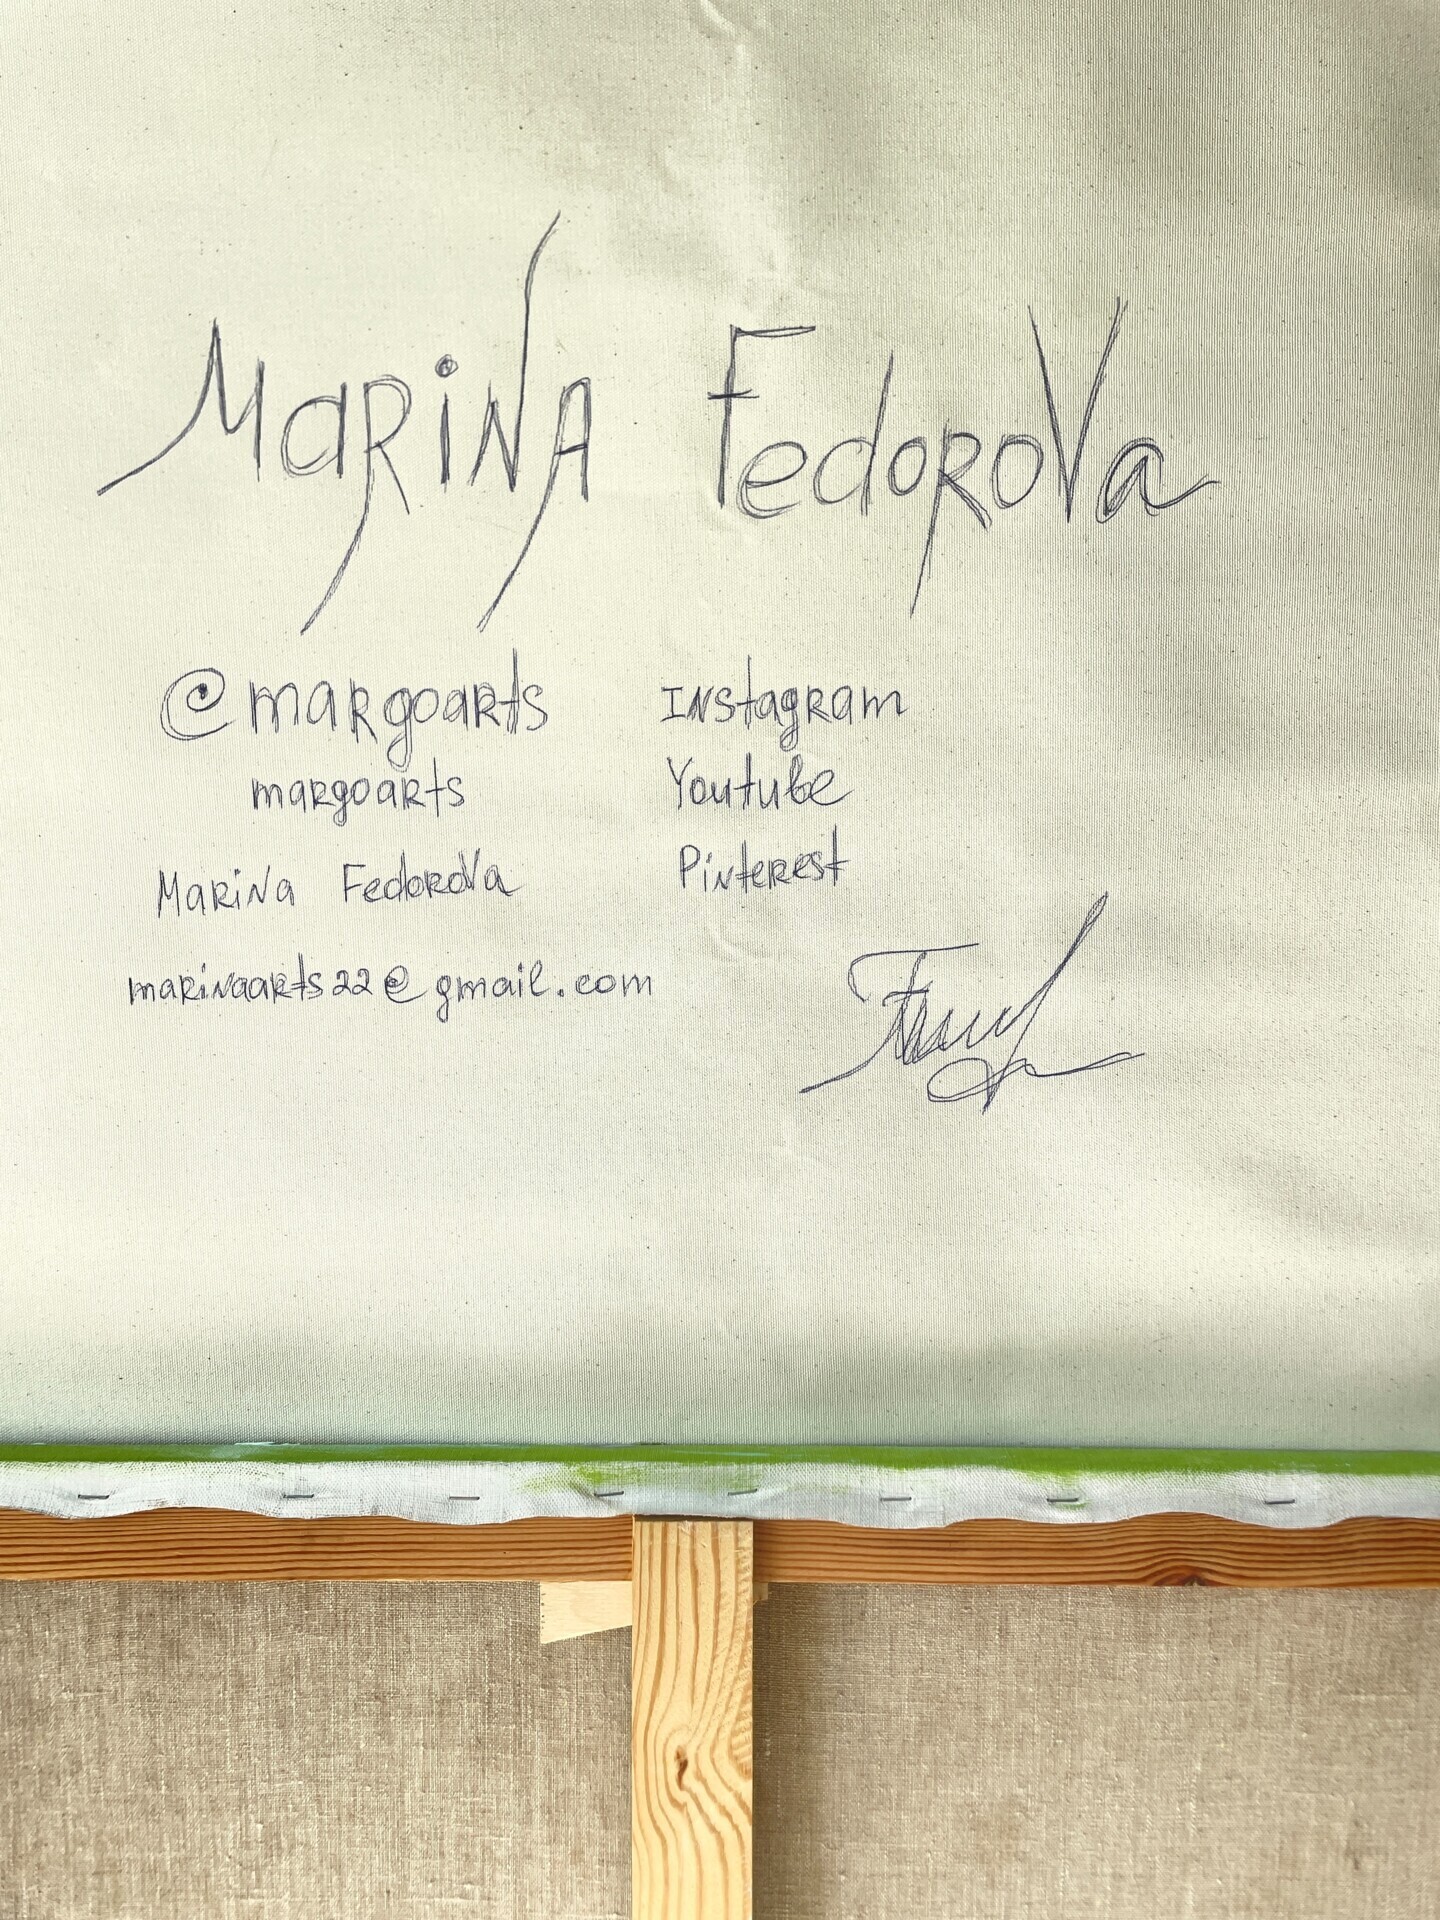 Marina Fedorova
@margoarts Instagram
margoarts Youtube
Marina Fedorova Pinterest
marinaarts22@gmail.com